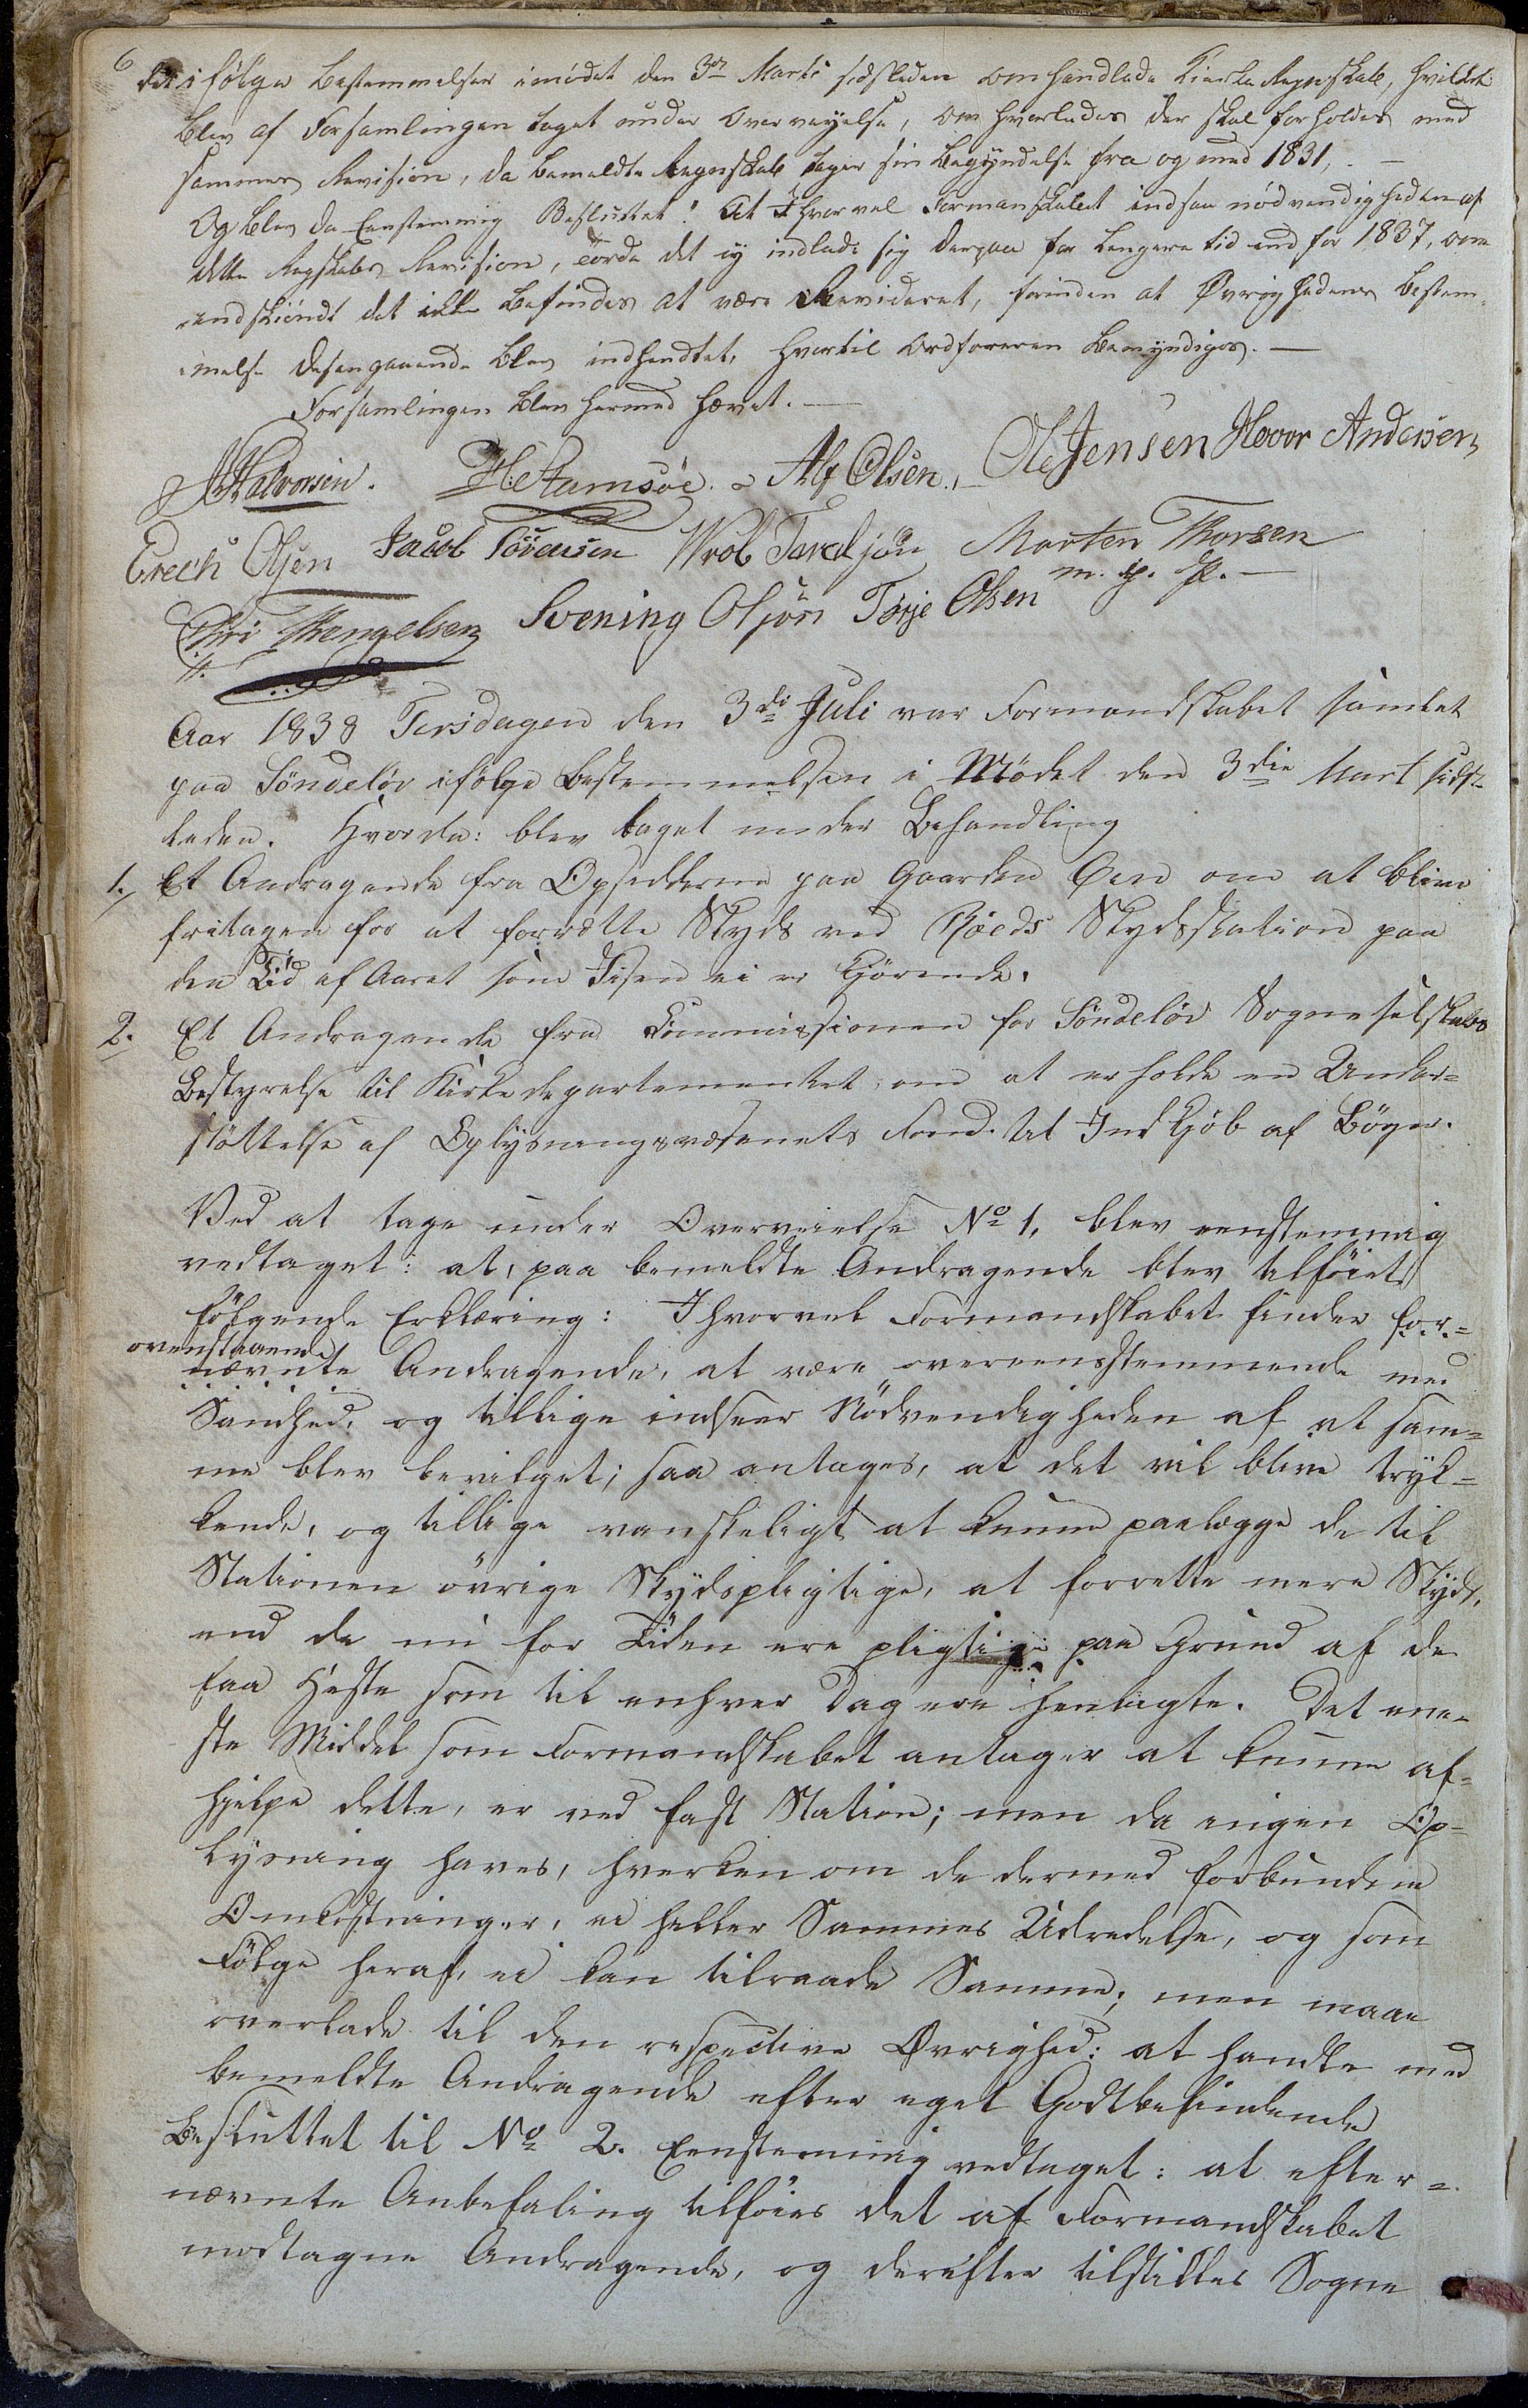 6
det ifölge Bestemmelser imödet den 3die Marti sidstleden omhandlede Kierke Regnskab, hvilket
blev af Forsamlingen taget under Overveyelse, om hvorledes der skal forholdes med
sammes Revision, da bemeldte Regnskab tager sin begyndelse fra og med 1831, —
Og blev da Eenstemmig Besluttet: At I hvorvel Formanskabet indsaa nödvendigheden af
dette Regskabs Revision, torde det ej indlade sig derpaa for Længere tid end for 1837, om
endskiöndt det ikke befindes at være Revideret, forinden at Øvrighedens bestem-
melse desangaaende blev indhendtet, hvortil Ordföreren bemyndiges. —
Forsamlingen blev hermed hævet. —
Halvorsen. H. Stamsöe. Alf Olsen. Ole Jensen Hovor Andersen
Erech Olsen Jacob Törresen Wrol Taraldsön Morten Thorsen
m. p. P. —
Chri Thengelsen Svening Olsön Torje Olsen
Aar 1838 Tirsdagen den 3die Juli var Formandskabet samlet
paa Söndelöv ifölge Bestemmelsen i Mödet den 3die Mart sidst-
leden. Hvorda: blev taget under Behandling
1. Et Andragende fra Opsidderne paa Gaarden Öen om at blive
fritagen for at forrette Skyds ved Röeds Skydsstation paa
den Tid af Aaret som Isen ei er kjörende.
2. Et Andragende fra Commissionen for Söndelöv Sogneselskabs
Bestyrelse til Kirkedepartementet, om at erholde en Under-
stöttelse af Oplysningsvæsenets Fond til Indkjöb af Böger.
Ved at tage under Overveielse No 1, blev eenstemmig
vedtaget: at, paa bemeldte Andragende blev tilföiet
fölgende Erklæring: I hvorvel Formandskabet finder for-
ovenstaaende
nævnte Andragende, at være overeensstemmende med
Sandhed, og tillige indseer Nödvendigheden af at sam-
me blev bevilget; saa antages, at det vil blive tryk-
kende, og tillige vanskeligt at kunne paalægge de til
Stationen övrige Skydspligtige, at forrette mere Skyds,
end de nu for Tiden ere pligtige paa Grund af de
faa Heste som til enhver Dag ere henlagte. Det ene-
ste Middel som Formandskabet antager at kunne af-
hjelpe dette, er ved fast Station; men da ingen Op-
lysning haves, hverken om de dermed forbundne
Omkostninger, ei heller Sammes Udredelse, og som
Fölge heraf, ei kan tilraade Samme; men maae
overlade til den respective Øvrighed: at handle med
bemeldte Andragende efter eget Godtbefindende
Besluttet til No 2. Eenstemmig vedtaget: at efter-
nævnte Anbefaling tilföies det af Formandskabet
modtagne Andragende, og derefter tilstilles Sogne